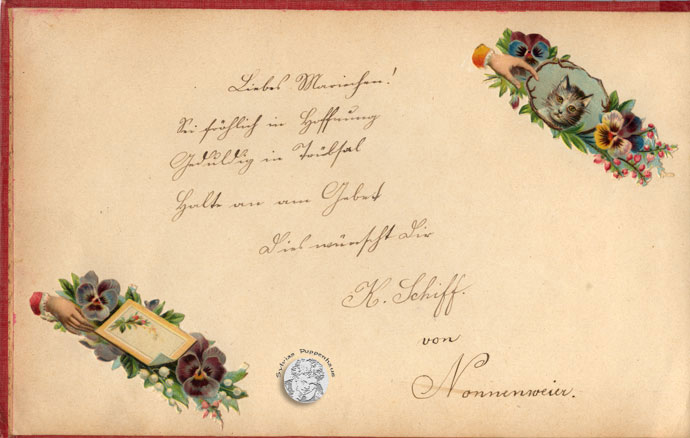 Liebes Mariechen!
Sei fröhlich in Hoffnung
Geduldig in Trübsal
Halte an am Gebet
Dies wünscht Dir
K. Schiff.
von
Nonnenweier.
Sylvias Puppenhaus